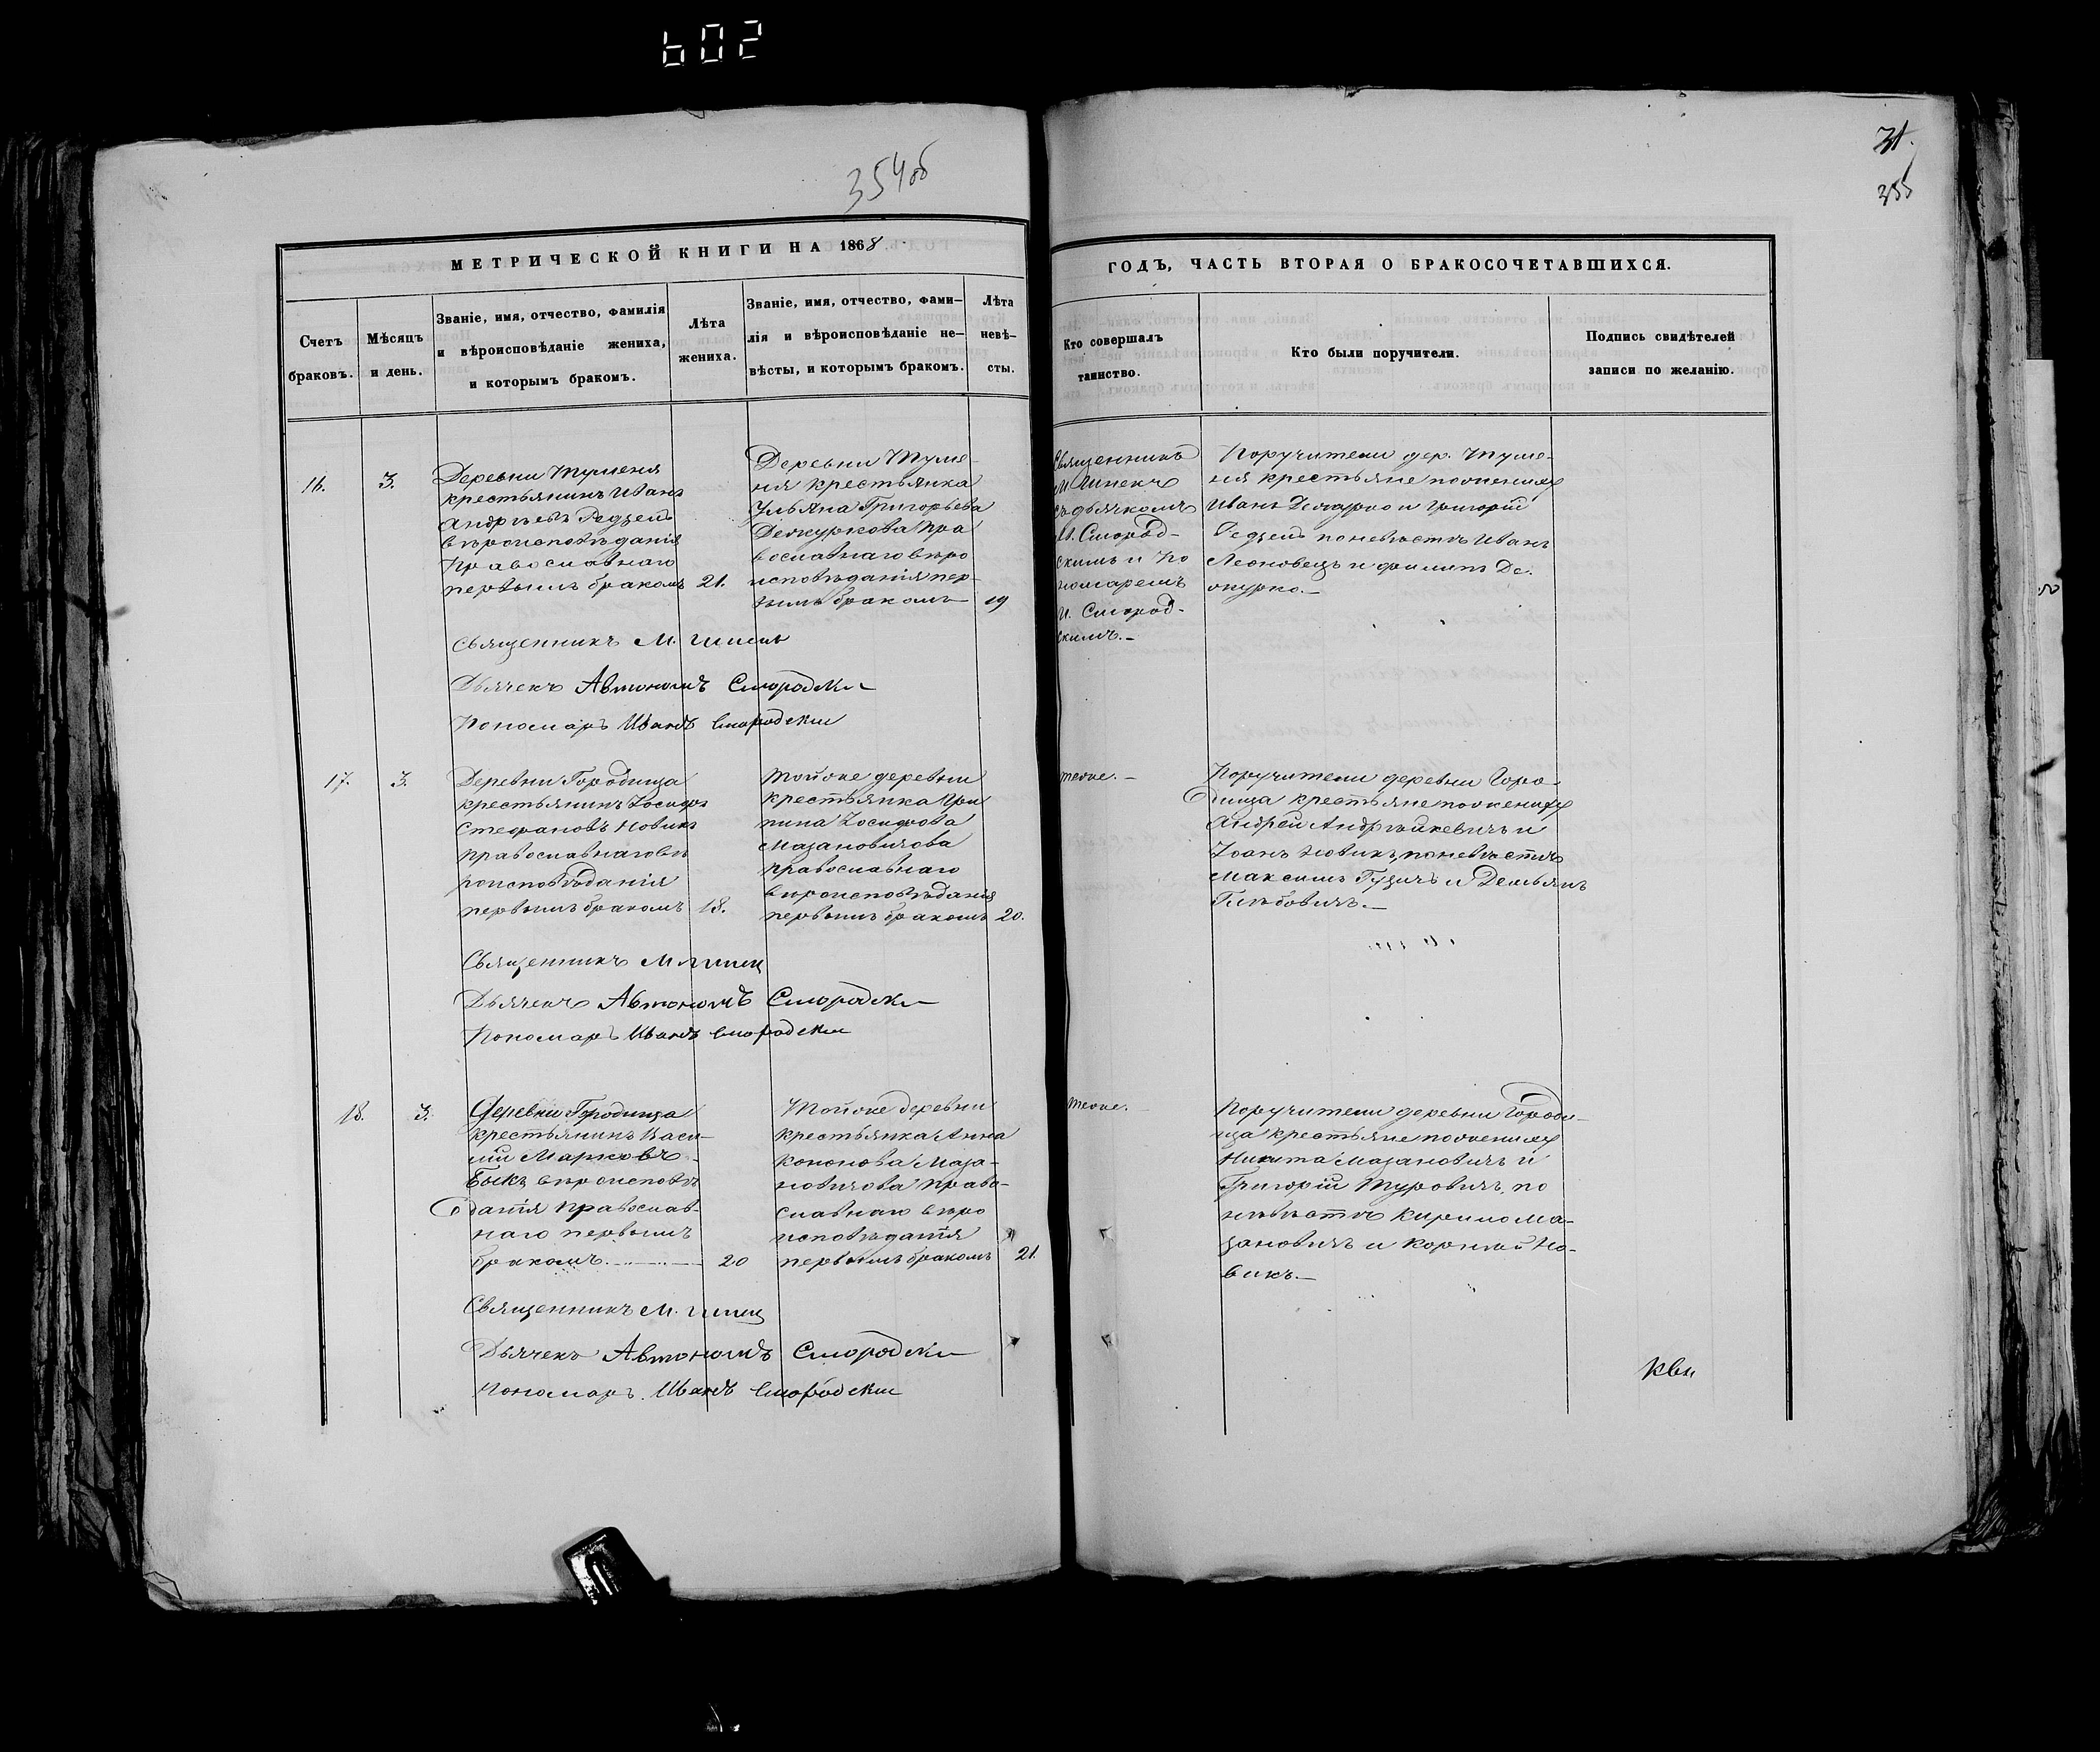 602
354 об
31.
355
МЕТРИЧЕСКОЙ КНИГИ НА 1868
ГОДЪ, ЧАСТЬ ВТОРАЯ О БРАКОСОЧЕТАВШИХСЯ.
Счетъ браковъ.
Мѣсяцъ и день.
Званіе, имя, отчество, фамилія
и вѣроисповѣданіе жениха,
и которымъ бракомъ.
Лѣта
жениха.
Званіе, имя, отчество, фами-
лія и вѣроисповѣданіе не-
вѣсты, и которымъ бракомъ.
Лѣта
невѣ-
сты.
Кто совершалъ
таинство.
Кто были поручители.
Подпись свидѣтелей
записи по желанію.
16.
3.
Деревни Тумленя
крестьянинъ Иванъ
Андреевъ Редзель
вѣроисповѣданія
Православнаго
первымъ бракомъ
21.
Деревни Туме-
ня крестьянка
Ульяна Григорьева
Пра
вославнаго вѣро
исповѣданія пер-
вымъ бракомъ
19
Священникъ
М.
съ дьячкомъ
А. Смород-
скимъ и По
номаремъ
И. Смород-
скимъ.
Поручители дер. Туме-
ня крестьяне по женихѣ
Иванъ и Григорій
Редзель по невѣстѣ Иванъ
Леоновецъ и Филипъ
Священникъ М.
Дьячекъ Автономъ Смородски
Пономаръ Иванъ Смородски
17.
3.
Деревни Городища
крестьянинъ Іосифъ
Стефановъ Новикъ
православнаго вѣ
роисповѣданія
первымъ бракомъ
18.
Тойже деревни
крестьянка Гри
пина Іосифова
Мазановичова
православнаго
вѣроисповѣданія
первымъ бракомъ
20.
Тоже.
Поручители деревни Горо-
дища крестьяне по женихѣ
Андрей Андрѣйкевичъ и
Іоанъ Новикъ, по невѣстѣ
Максимъ Гузичъ и Демьянъ
Глѣбовичъ.
Священникъ М.
Дьячекъ Автономъ Смородски
Пономаръ Иванъ Смородски
18.
3.
Деревни Городища
крестьянинъ Васи-
лій Марковъ
Быкъ вѣроисповѣ
данія православ-
наго первымъ
бракомъ.
20
Тойже деревни
крестьянка Анна
Кононова Маза-
новичова Право-
славнаго вѣро
исповѣданія
первымъ бракомъ
21.
Тоже.
Поручители деревни Городи-
ща крестьяне по женихѣ
Никита Мазановичъ и
Григорій Туровичъ, по
невѣстѣ Кирило Ма-
зановичъ и Корнѣй Но-
викъ.
Священникъ М.
Дьячекъ Автономъ Смородски
Пономаръ Иванъ Смородски